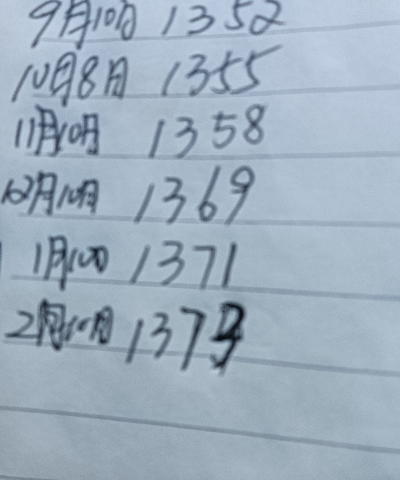 9月10日 1352
10月8日 1355
11月10日 1358
12月10日 1369
1月10日 1371
2月10日